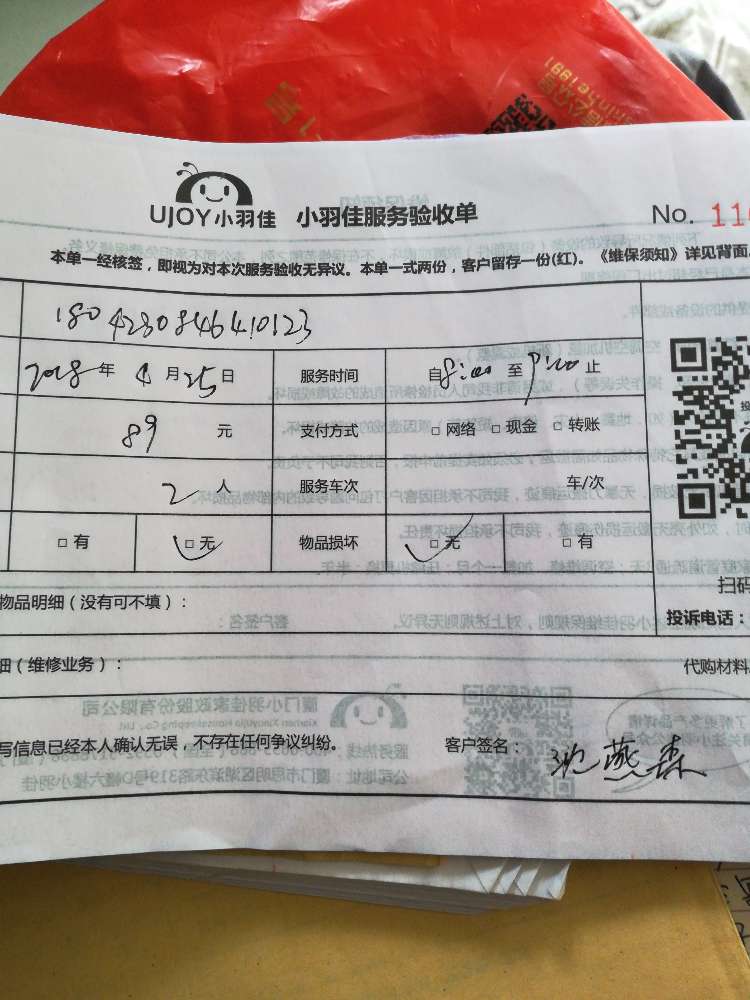 UJOY小羽佳 小羽佳服务验收单 No. 11
本单一经核签，即视为对本次服务验收无异议。本单一式两份，客户留存一份(红)。《维保须知》详见背面
180428084641 0123
2018 年 4 月 25 日 服务时间 自 8:00 至 9:00 止
89 元 支付方式 □ 网络 □ 现金 □ 转账
2 人 服务车次 车/次
□ 有 □ 无 物品损坏 □ 无 □ 有
扫码
物品明细（没有可不填）：
投诉电话：
细（维修业务）： 代购材料
写信息已经本人确认无误，不存在任何争议纠纷。 客户签名： 沈燕森